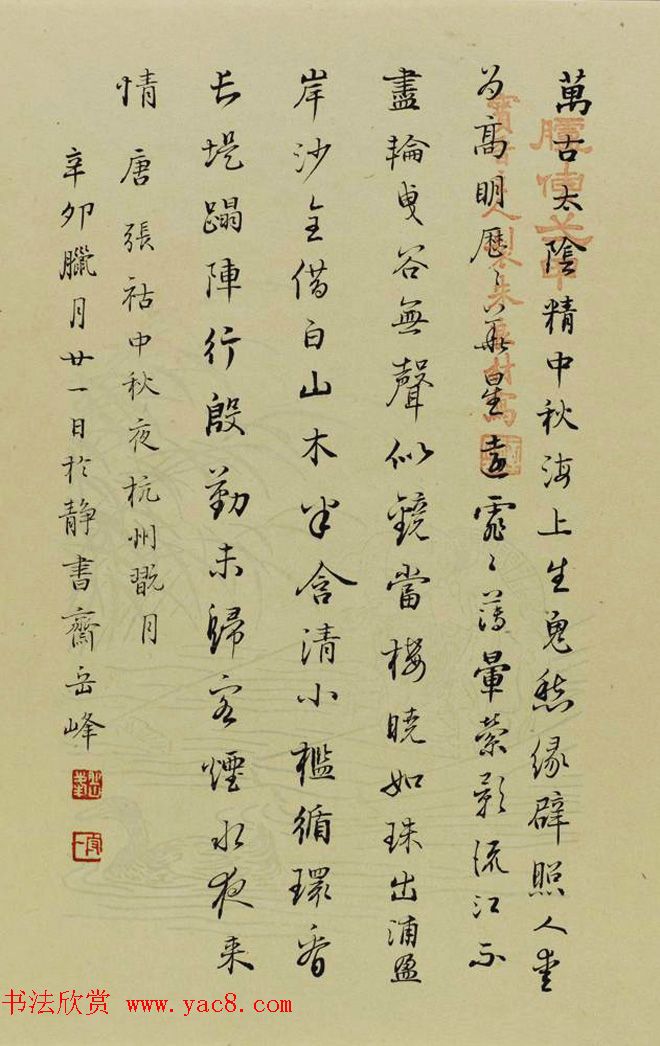 萬古太陰精中秋海上生鬼愁緣辟照人愛
为高明歷〻華星遠霏〻薄暈縈影流江不
盡輪曳谷無聲似鏡當樓曉如珠出浦盈
岸沙全借白山木半含清小檻循環看
长堤蹋陣行殷勤未歸客煙水夜来
情 唐張祜中秋夜杭州翫月
辛卯臘月廿一日於静書齋岳峰
书法欣赏 www.yac8.com